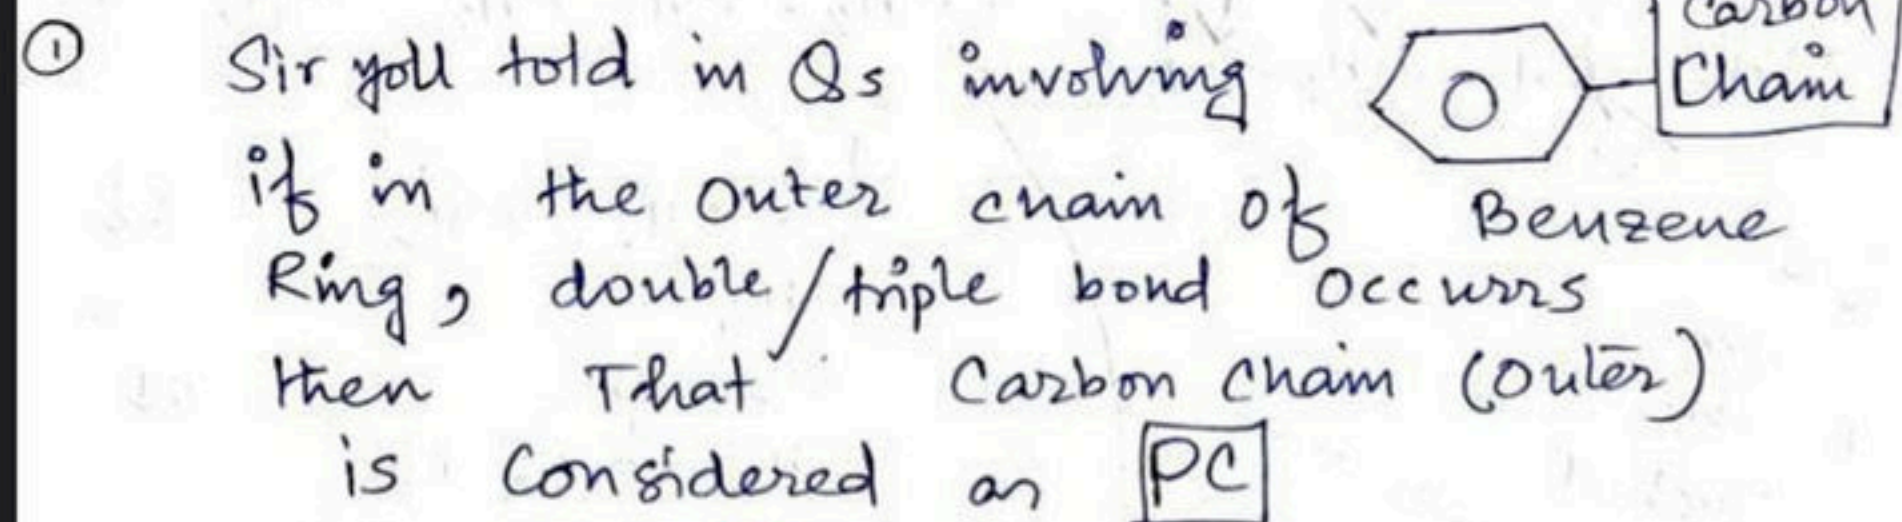 ① Sir yoll told in Qs involving Carbon
Chain
if in the outer chain of Benzene
Ring, double/triple bond occurrs
then That Carbon Chain (outer)
is Considered as PC